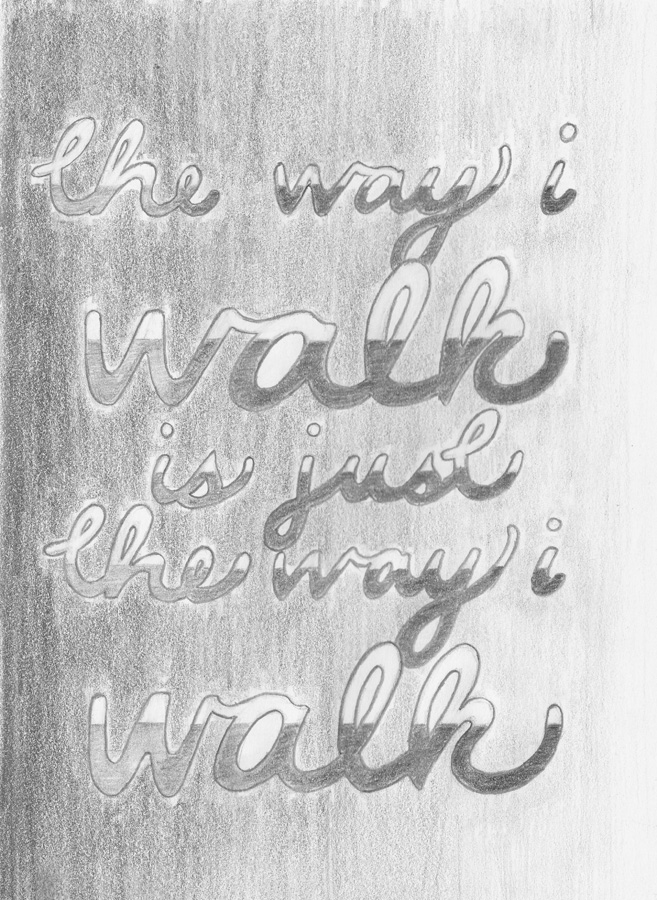 the way i
walk
is just
the way i
walk